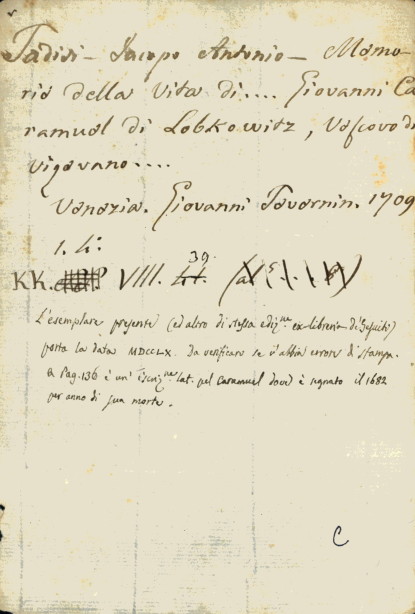 Tadisi – Jacopo Antonio – Memo-
rie della Vita di .... Giovanni Ca
ramuel di Lobkowitz, Vescovo di
Vigevano ....
Venezia. Giovanni Tevernin. 1709
1. 4º:
KK. VIII. 39.
L'esemplare presente (ed altro di stessa edizne. ex-libreria di Gesuiti)
porta la data MDCCLX. Da verificare se v'abbia errore di stampa.
A Pag. 136 è un' Iscrizne lat. pel Caramuel dove è segnato il 1682
per anno di sua morte.
C